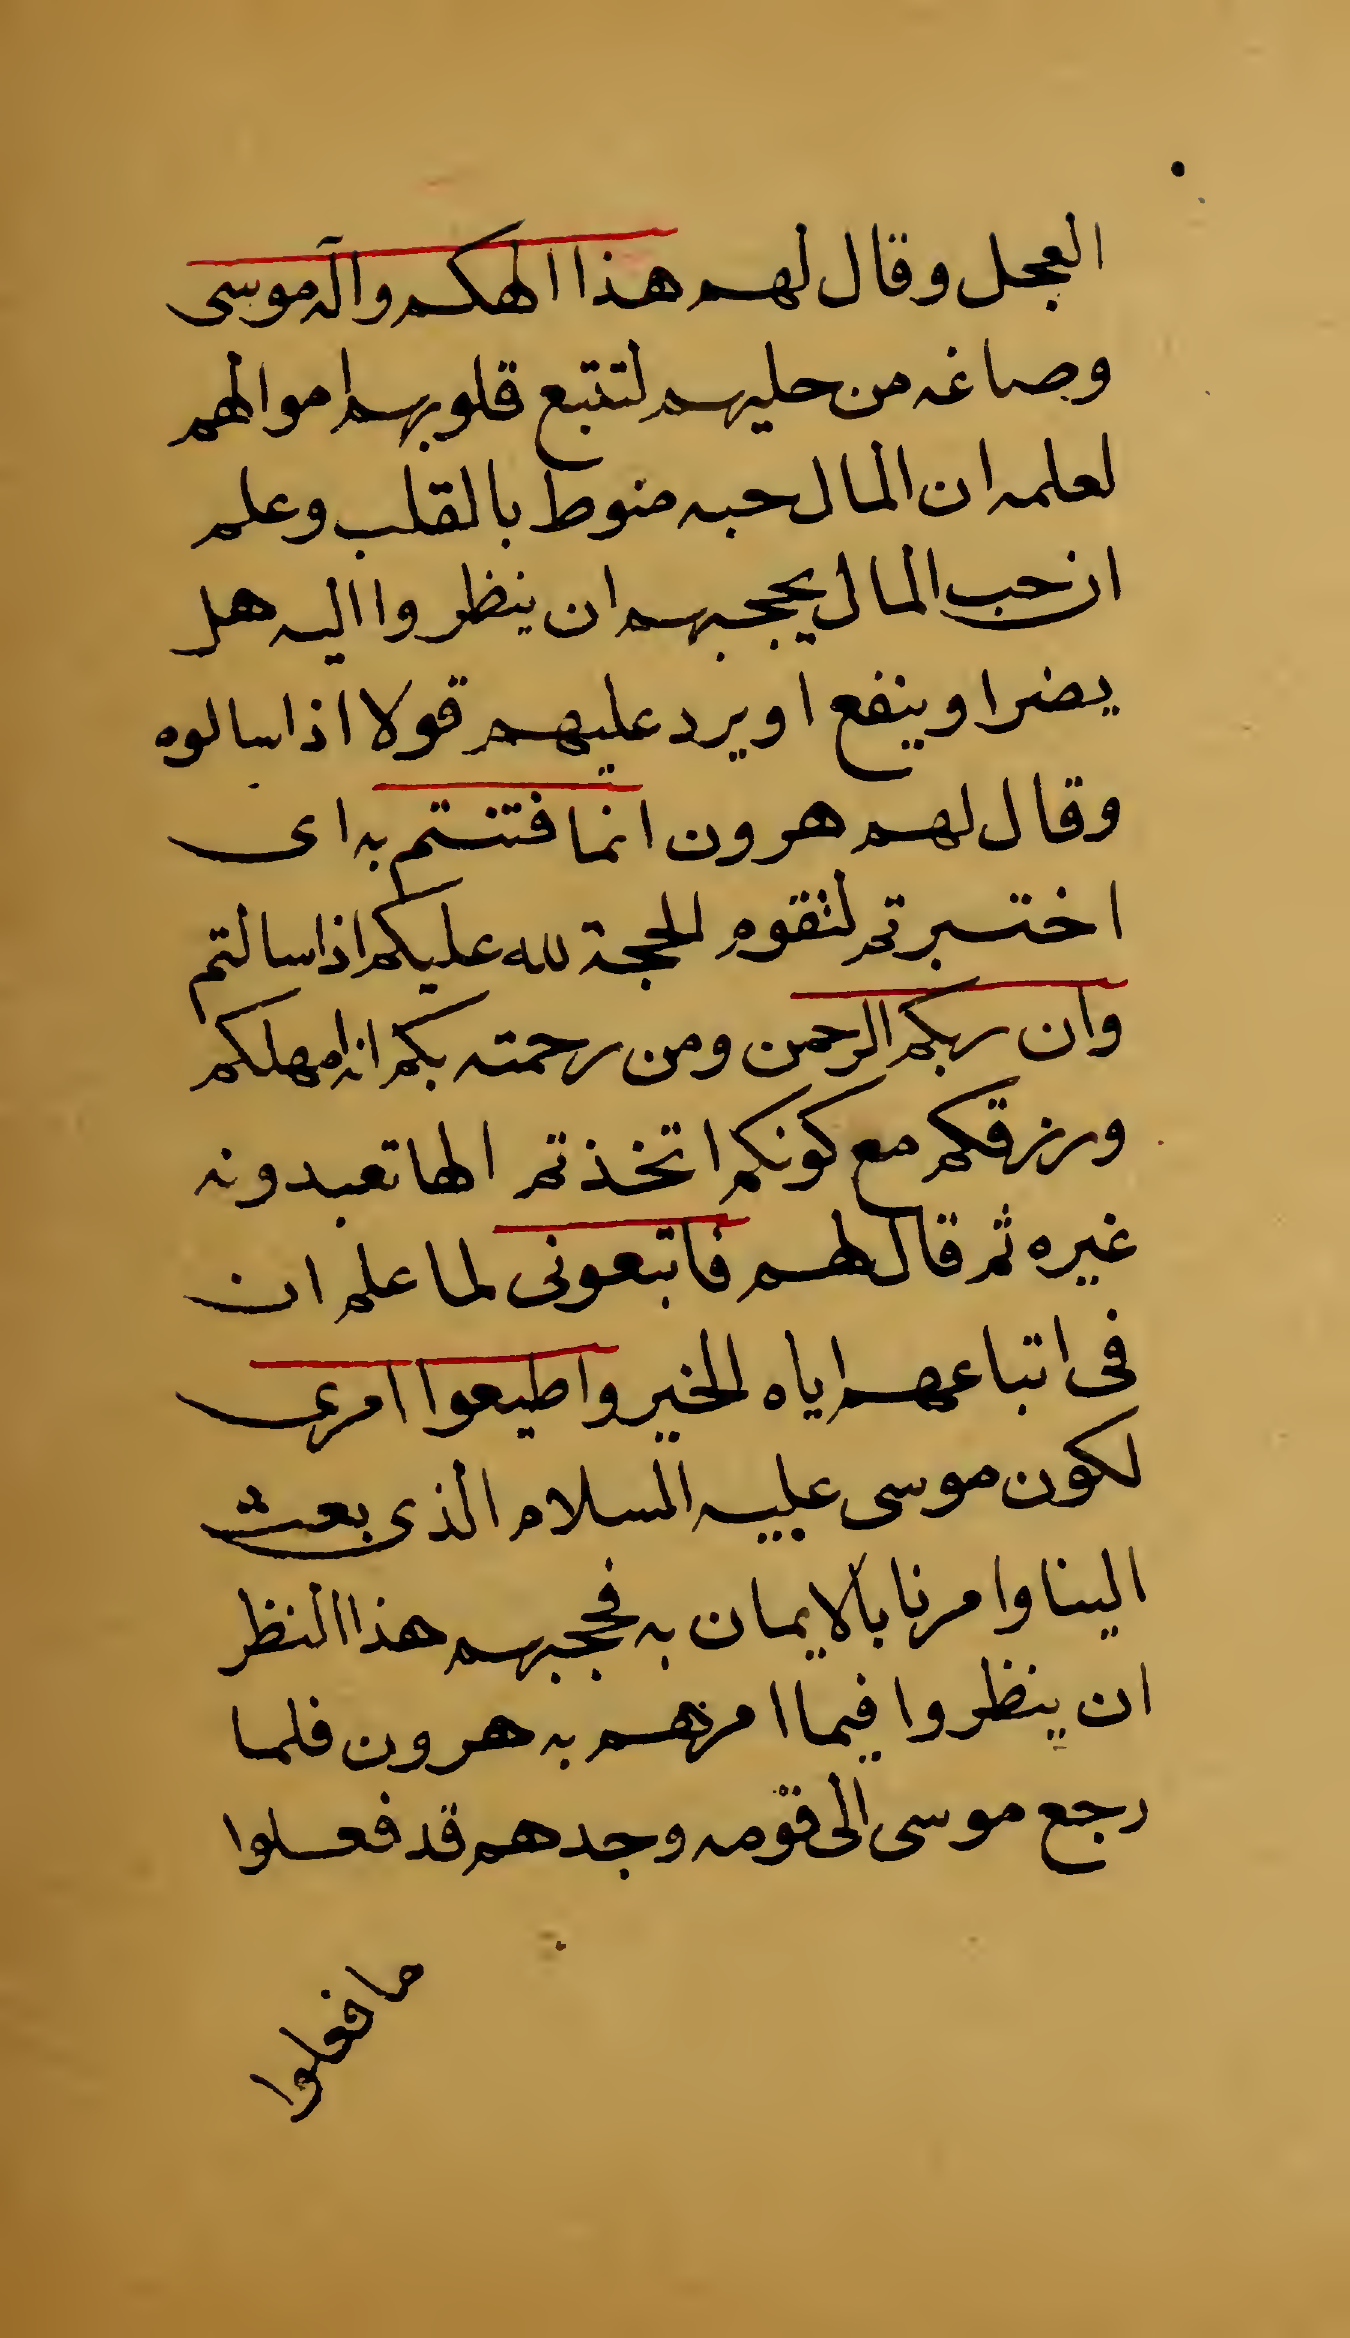 العجل وقال لهم هذا الهكم واله موسى
وصاغه من حليهم لتتبع قلوبهم اموالهم
لعلمه ان المال حبه منوط بالقلب وعلم
ان حب المال يحجبهم ان ينظروا اليه هل
يضر او ينفع او يرد عليهم قولا اذا سالوه
وقال لهم هرون انما فتنتم به اى
اختبرتم لتقوم الحجة لله عليكم اذا سالتم
وان ربكم الرحمن ومن رحمته بكم انه امهلكم
ورزقكم مع كونكم اتخذتم الها تعبدونه
غيره ثم قال لهم فاتبعونى لما علم ان
فى اتباعهم اياه الخير واطيعوا امرى
لكون موسى عليه السلام الذى بعث
الينا وامرنا بالايمان به فحجبهم هذا النظر
ان ينظروا فيما امرهم به هرون فلما
رجع موسى الى قومه وجدهم قد فعلوا
ما فعلوا